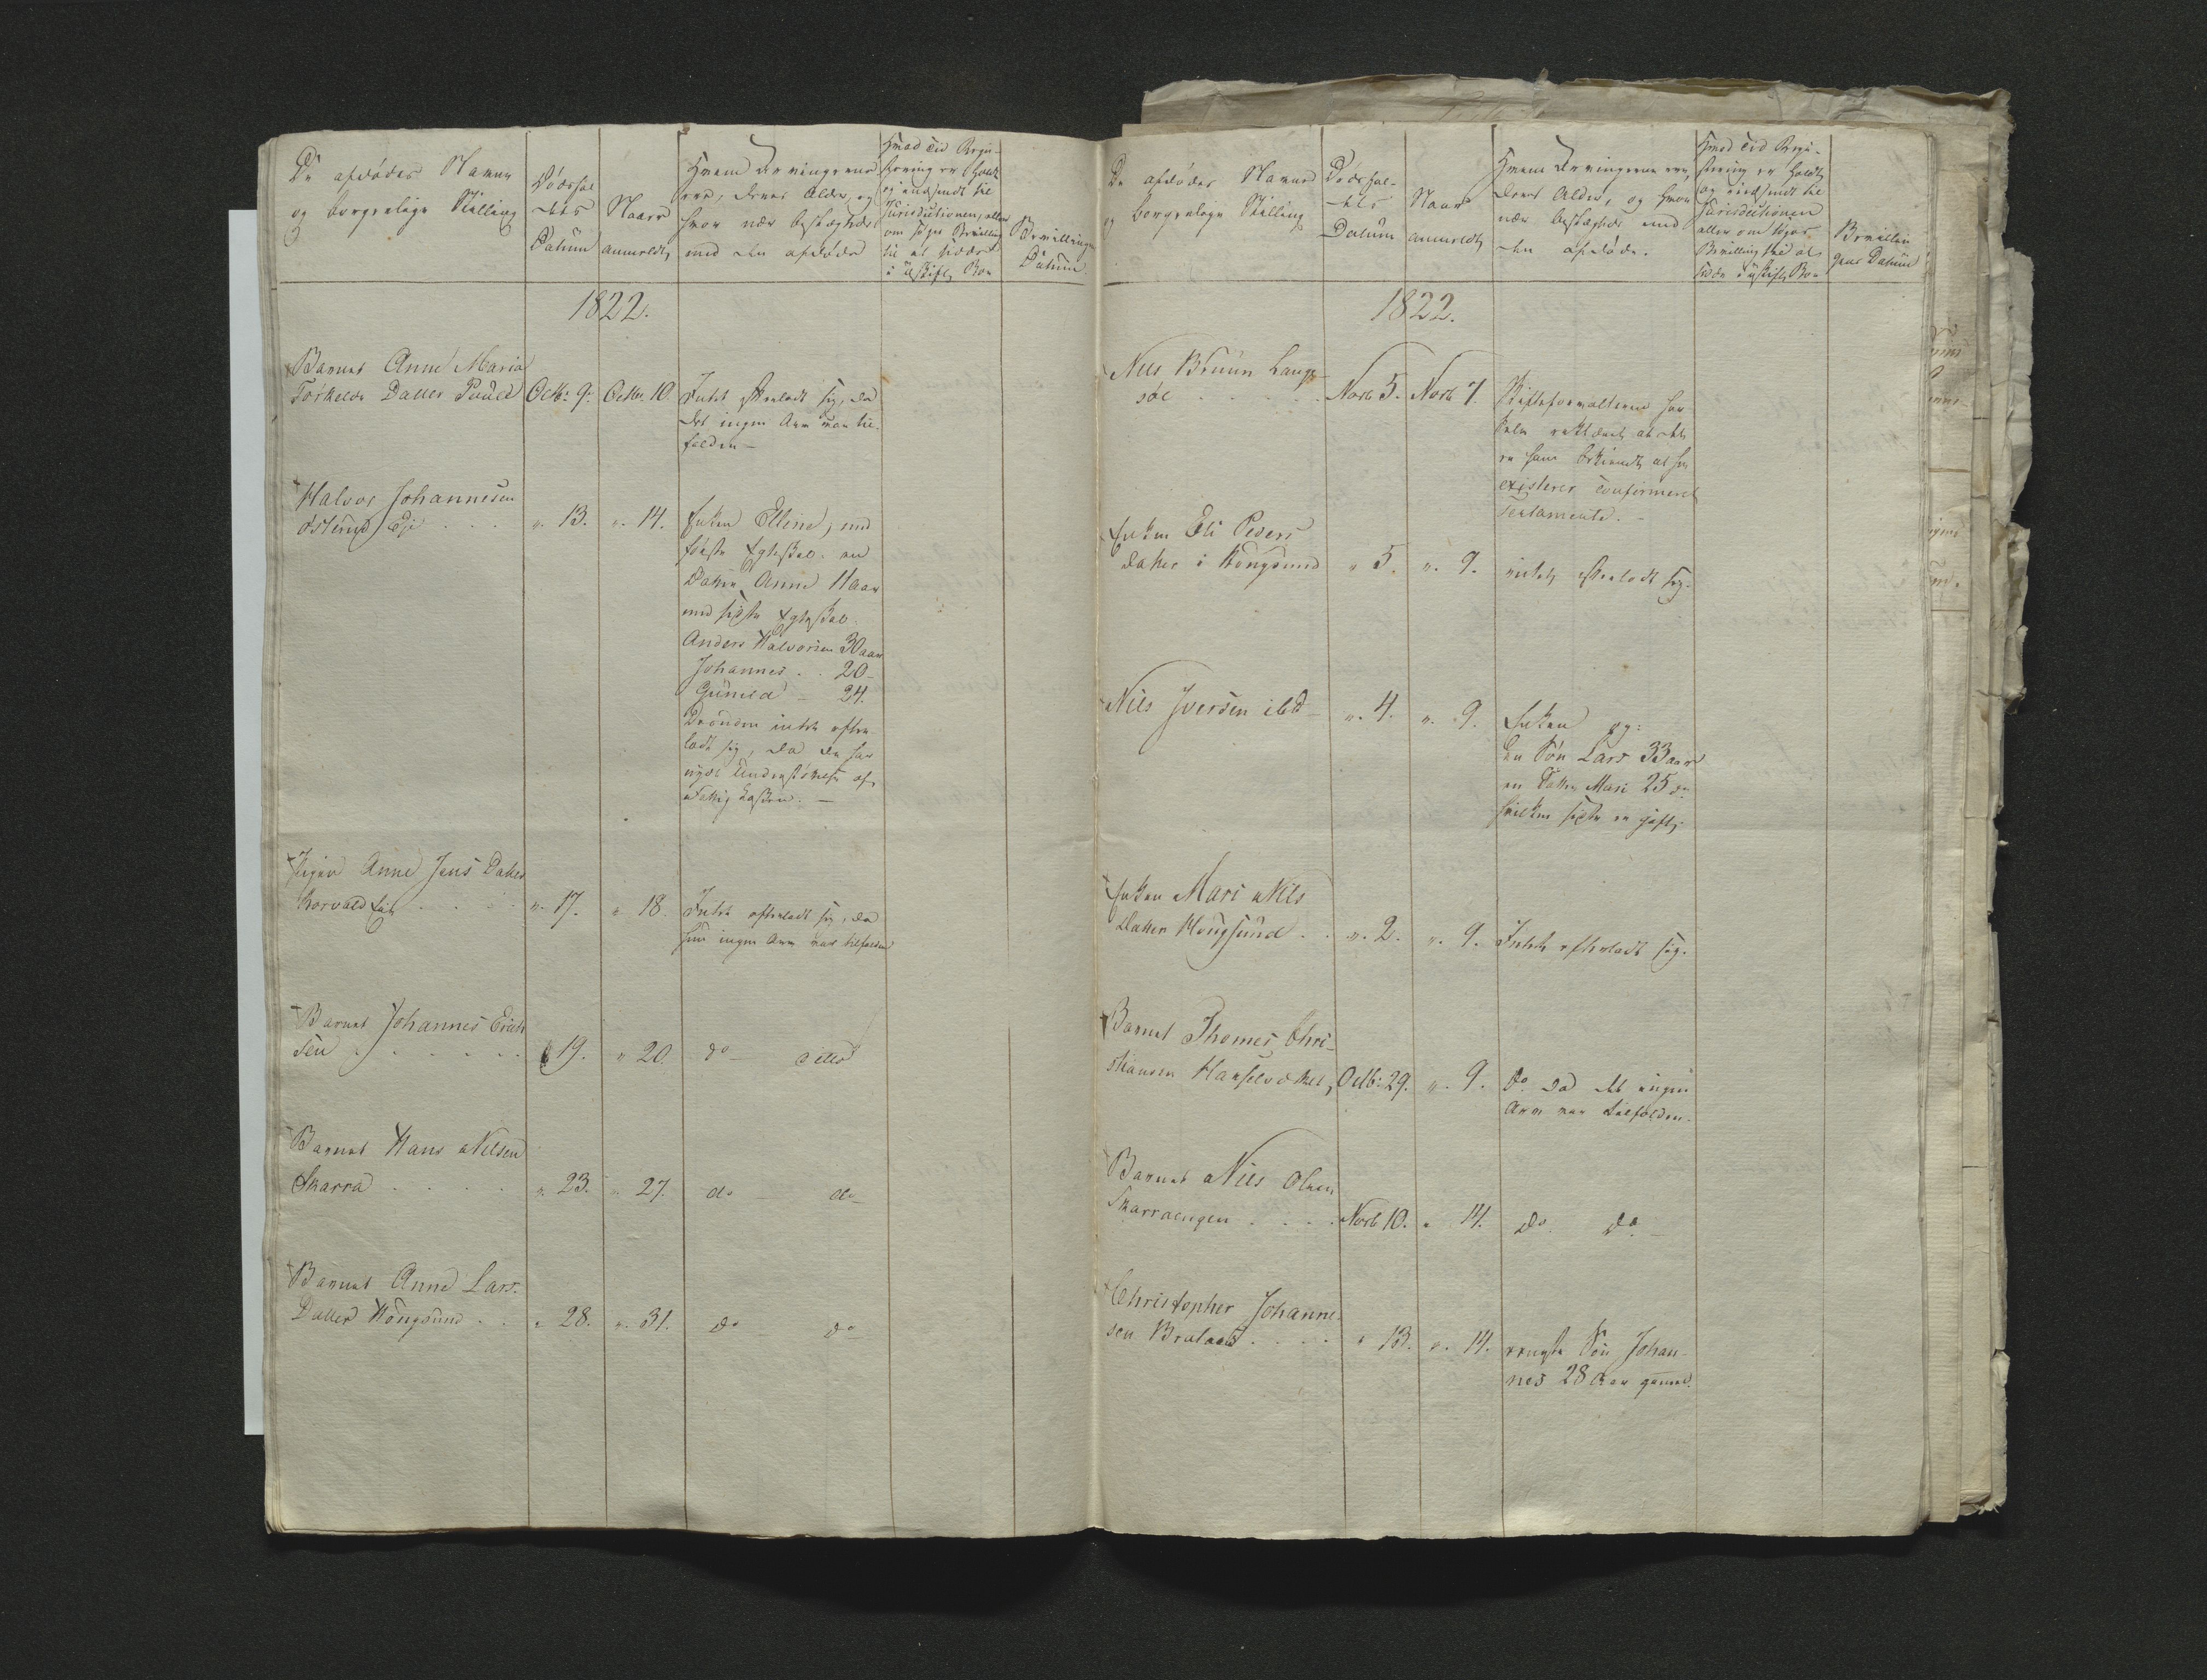 De afdødes Navne
og borgerlige Stilling
Dødsfal-
dets
Datum
Naar
anmeldt
Hvem Arvingerne
ere, deres Alder, og
hvor nær beslægtede
med den afdøde
Hvad Tid Regi-
strering er holdt
og indsendt til
Jurisdictionen, eller
om søges Bevilling
til at sidde
i uskift Bo
Bevillingens
Datum
1822.
Barnet Anne Maria
Torkelds Datter
Octbr 9. Octbr. 10.
Intet efterlodt sig, da
det ingen Arv var til-
falden
Halvor Johannesen
Østerud Eje
" 13. " 14.
Enken Elline, med
første Egteskab en
Datter Anne Maar
med sidste Egteskab
Anders Halvorsen 30 aar
Johannes . . 20 -
Gunild - 24.
intet efter-
ladt sig, da de har
nydt Understøttelse af
Fattig Kassen. -
Pigen Anne Jens Datter
Korvald Eie
" 17. " 18.
Intet efterladt sig, da
hun ingen Arv var tilfalden
Barnet Johannes Erich
sen
19. " 20.
do ditto
Barnet Hans Nilsen
Skarra
" 23. " 27.
do - do
Barnet Anne Lars
Datter Hougsund
" 28. " 31.
do do
De afdødes Navne
og borgerlige Stilling
Dødsfal-
dets
Datum
Naar
anmeldt
Hvem Arvingerne ere,
deres Alder, og hvor
nær beslægtede med
den afdøde.
Hvad Tid Regi-
strering er holdt
og indsendt til
Jurisdictionen
eller om søges
Bevilling til at
sidde i uskift Bo
Bevillin
gens Datum
1822.
Nils Bruun Lange-
søe
Novb 5. Novb 7.
Skifteforvalteren har
selv erklæret at det
er ham bekiendt at her
existerer confirmeret
Testamente. -
Enken Eli Peders
Datter i Hougsund
" 5. " 9.
intet efterladt sig.
Nils Iversen ibd -
" 4. " 9.
Enken og:
en Søn Lars 33 aar
en Datter Mari 25 do
hvilken sidste er gift
Enken Mari Nils
Datter Hougsund
" 2. " 9.
Intet efterladt sig.
Barnet Thomes Chri-
stiansen
Octb: 29. " 9.
do da det ingen
Arv var tilfalden.
Barnet Nils Olsen
Skarraengen
Novb 10. " 14.
do. do.
Christopher Johanne-
sen
" 13. " 14.
eneste Søn Johan-
nes 28 Aar gammel.